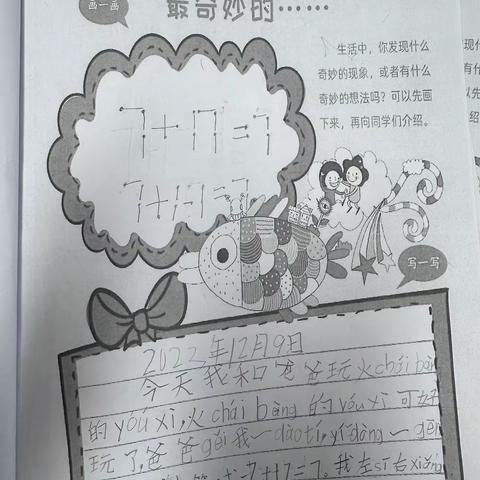 画一画
最奇妙的……
生活中，你发现什么
奇妙的现象，或者有什么
奇妙的想法吗？可以先画
下来，再向同学们介绍。
7+17=7
7+1-1=7
写一写
2022年12月9日
今天我和爸爸玩火chái bàng
的yóu xì,火chái bàng的yóu xì可好
玩了,爸爸gěi我一dào tí,yí dòng一gēn
7+17=7。我左sī右xiǎng